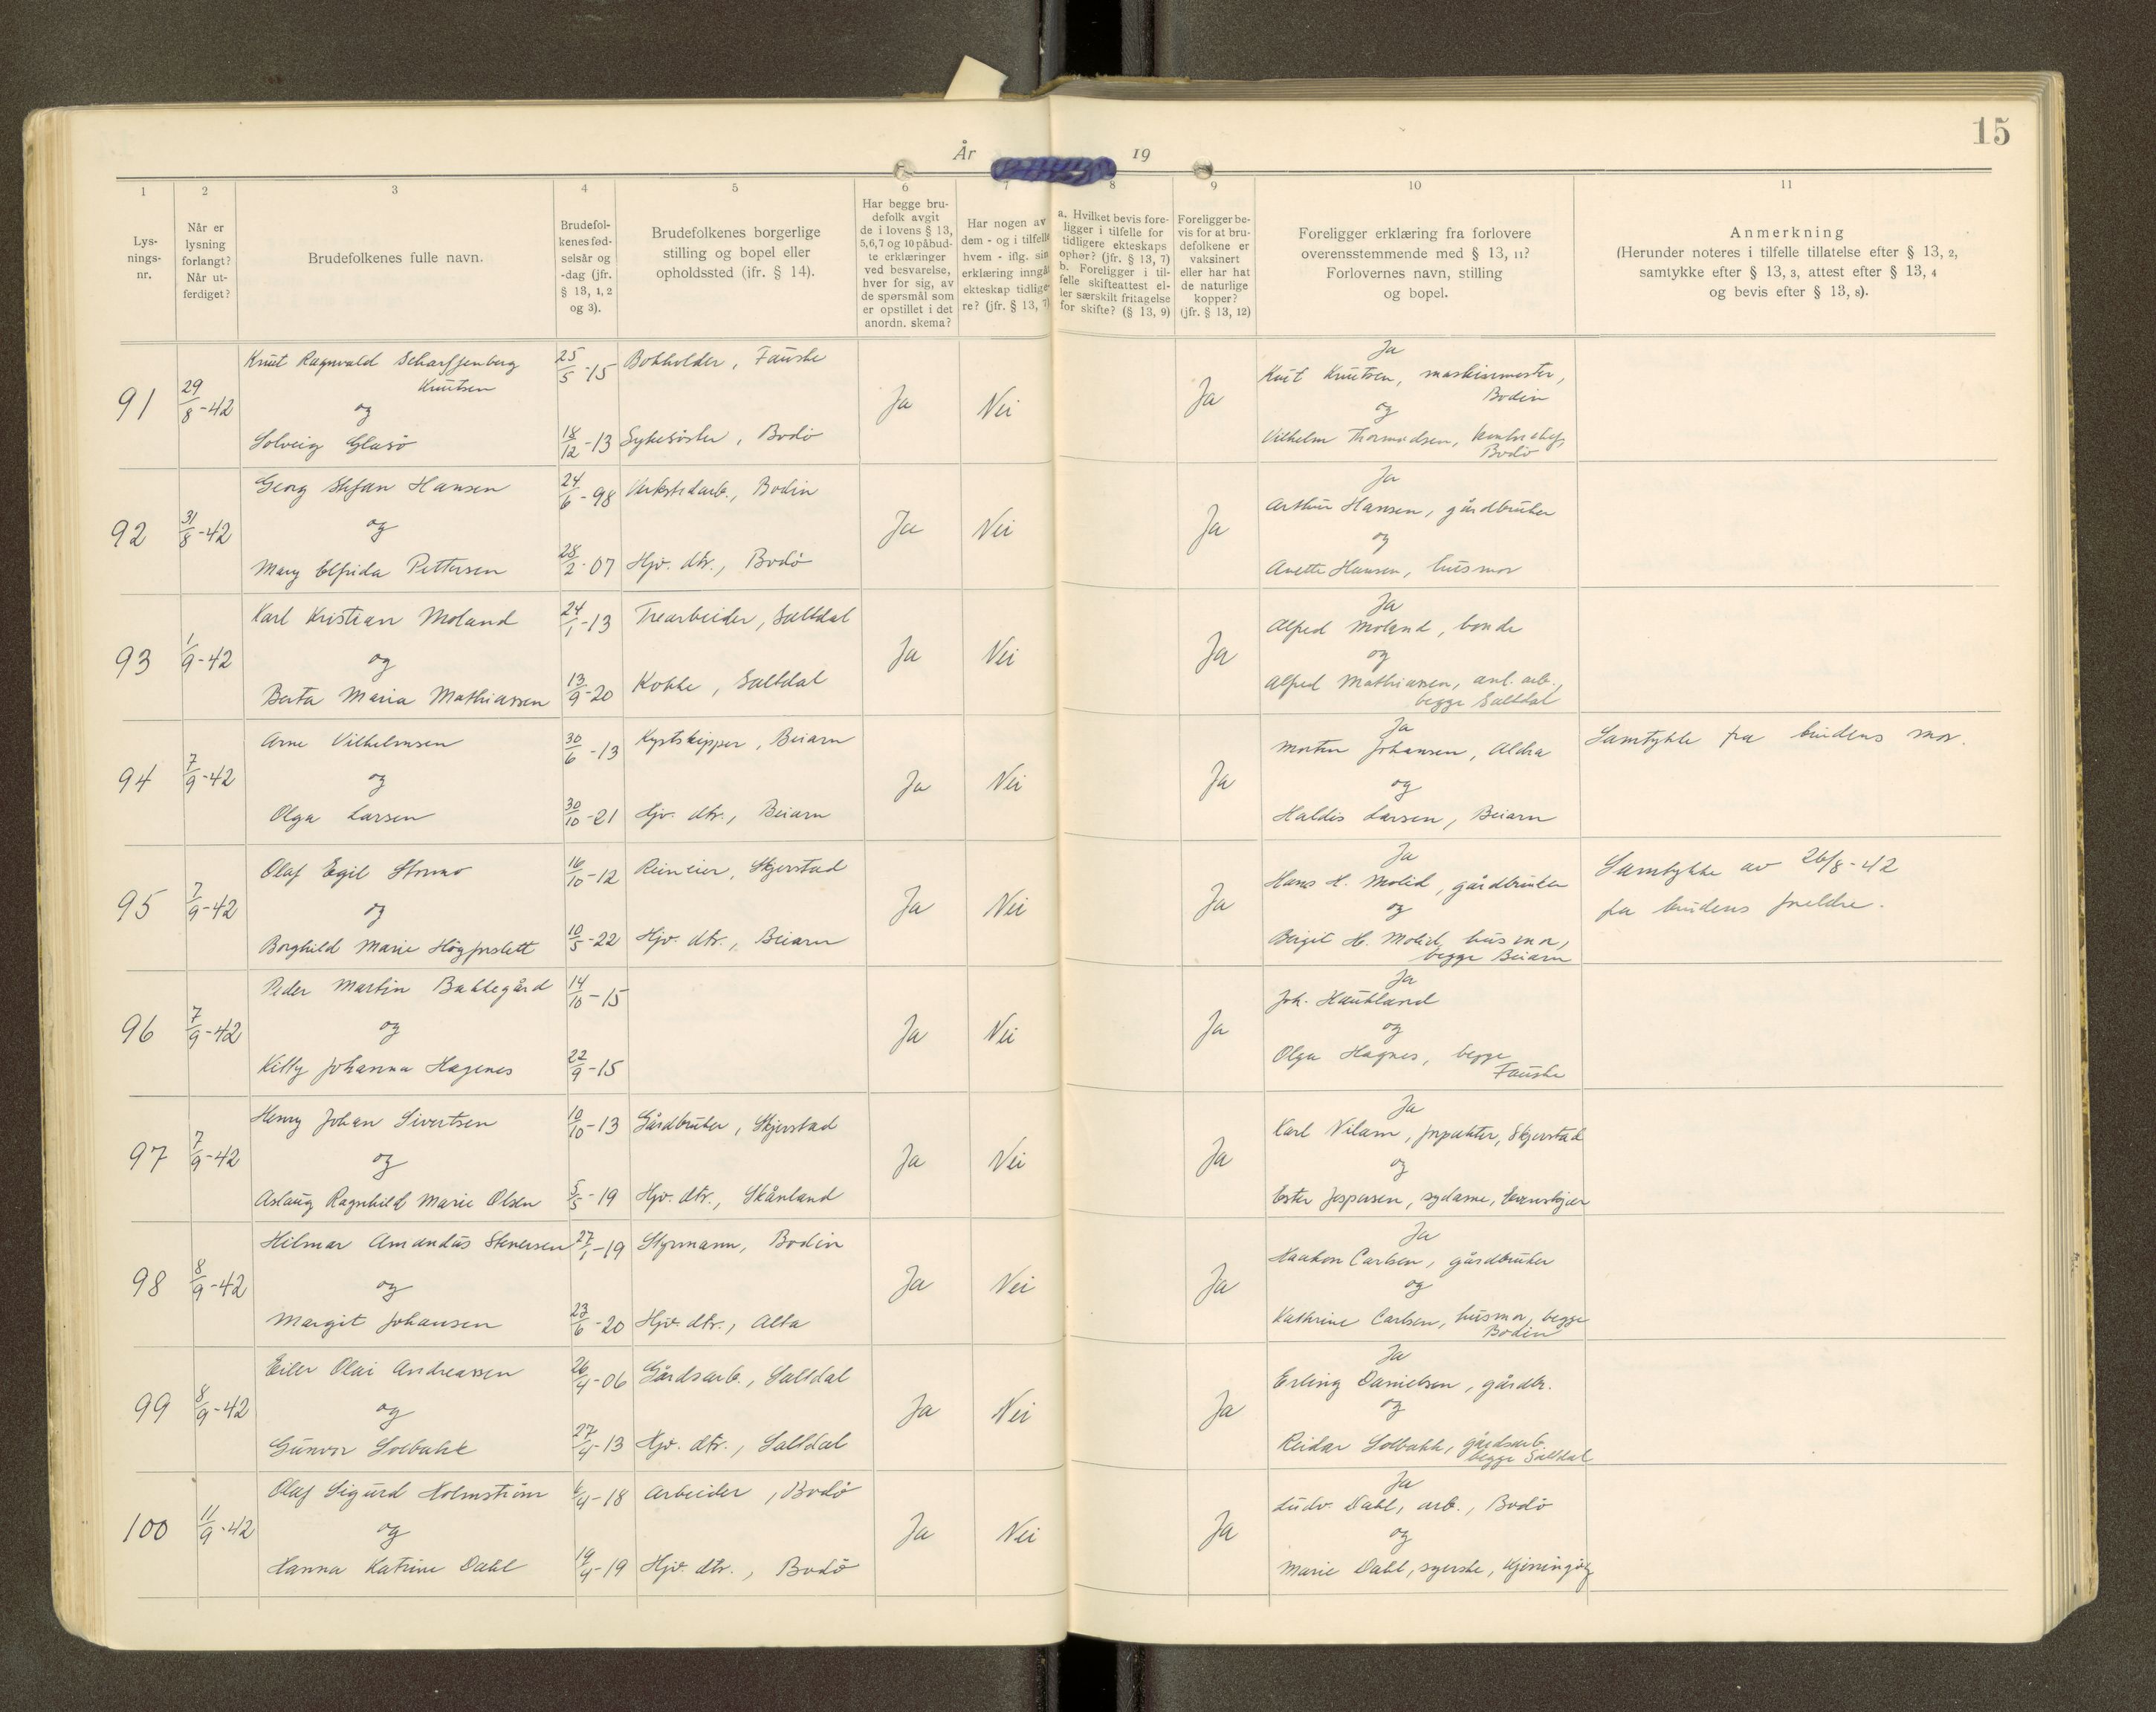 15
År 19
1 2 3 4 5 6 7 8 9 10 11
Lys-
nings-
nr.
Når er
lysning
forlangt?
Når ut-
ferdiget?
Brudefolkenes fulle navn.
Brudefol-
kenes fød-
selsår og
-dag (jfr.
§ 13, 1, 2
og 3).
Brudefolkenes borgerlige
stilling og bopel eller
opholdssted (ifr. § 14).
Har begge bru-
defolk avgit
de i lovens § 13,
5,6,7 og 10 påbud-
te erklæringer
ved besvarelse,
hver for sig, av
de spørsmål som
er opstillet i det
anordn. skema?
Har nogen av
dem - og i tilfelle
hvem - iflg. sin
erklæring inngåt
ekteskap tidlige-
re? (jfr. § 13, 7)
a. Hvilket bevis fore-
ligger i tilfelle for
tidligere ekteskaps
ophør? (jfr. § 13, 7)
b. Foreligger i til-
felle skifteattest el-
ler særskilt fritagelse
for skifte? (§ 13, 9)
Foreligger be-
vis for at bru-
defolkene er
vaksinert
eller har hat
de naturlige
kopper?
(jfr. § 13, 12)
Foreligger erklæring fra forlovere
overensstemmende med § 13, 11?
Forlovernes navn, stilling
og bopel.
Anmerkning
(Herunder noteres i tilfelle tillatelse efter § 13, 2,
samtykke efter § 13, 3, attest efter § 13, 4
og bevis efter § 13, 8).
91 29/8-42
Knut Ragnvald Scharffenberg
Knutsen
og
Solveig Glasø
25/5-15 Bokholder, Fauske
18/12-13 Sykesøster, Bodø
Ja Nei Ja
Ja
Knut Knutsen, maskinmester,
Bodin
og
Vilhelm Thormodsen,
Bodø
92 31/8-42
Georg Stefan Hansen
og
Mary Elfrida Pettersen
24/6-98 Verkstedarb., Bodin
28/2-07 Hjv. dtr., Bodø
Ja Nei Ja
Ja
Arthur Hansen, gårdbruker
og
Anette Hansen, husmor
93 1/9-42
Karl Kristian Moland
og
Berta Maria Mathiassen
24/1-13 Trearbeider, Saltdal
13/9-20 Kokke, Saltdal
Ja Nei Ja
Ja
Alfred Moland, bonde
og
Alfred Mathiassen, anl. arb.,
begge Saltdal
94 7/9-42
Arne Vilhelmsen
og
Olga Larsen
30/6-13 Kystskipper, Beiarn
30/10-21 Hjv. dtr., Beiarn
Ja Nei Ja
Ja
Morten Johansen, Aldra
og
Haldis Larsen, Beiarn
Samtykke fra brudens mor.
95 7/9-42
Olaf Egil Stormo
og
Borghild Marie Høgforslett
16/10-12 Reineier, Skjerstad
10/5-22 Hjv. dtr., Beiarn
Ja Nei Ja
Ja
Hans H. Molid, gårdbruker
og
Birgit H. Molid, husmor,
begge Beiarn
Samtykke av 26/8-42
fra brudens foreldre.
96 7/9-42
Peder Martin Bakkegård
og
Killy Johanna Hagenes
14/10-15
22/9-15
Ja Nei Ja
Ja
Joh. Haukland
og
Olga Hagnes, begge
Fauske
97 7/9-42
Henry Johan Sivertsen
og
Aslaug Ragnhild Marie Olsen
10/10-13 Gårdbruker, Skjerstad
5/5-19 Hjv. dtr., Skånland
Ja Nei Ja
Ja
Karl Nilam, forpakter, Skjerstad
og
Ester Jespersen, sydame, Evenskjær
98 8/9-42
Hilmar Amandus Stenersen
og
Margit Johansen
27/1-19 Styrmann, Bodin
23/6-20 Hjv. dtr., Alta
Ja Nei Ja
Ja
Haakon Carlsen, gårdbruker
og
Kathrine Carlsen, husmor, begge
Bodin
99 8/9-42
Eiler Olai Andreassen
og
Gunvor Solbakk
26/4-06 Gårdsarb., Saltdal
27/4-13 Hjv. dtr., Saltdal
Ja Nei Ja
Ja
Erling Danielsen, gårdbr.
og
Reidar Solbakk, gårdsarb.
begge Saltdal
100 11/9-42
Olaf Sigurd Holmstrøm
og
Hanna Katrine Dahl
6/4-18 Arbeider, Bodø
19/4-19 Hjv. dtr., Bodø
Ja Nei Ja
Ja
Ludv. Dahl, arb., Bodø
og
Marie Dahl, syerske, Kjerringøy